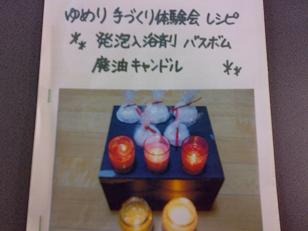 ゆめり 手づくり体験会 レシピ
** 発泡入浴剤 バスボム
廃油キャンドル **